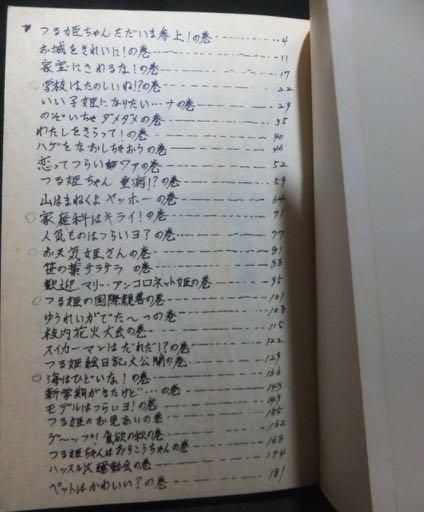 つる姫ちゃんただいま参上!の巻 4
お城をきれいに!の巻 11
家宝にさわるな!の巻 17
学校はたのしいね!?の巻 22
いい子姫になりたい…ナの巻 29
のぞいちゃダメダメの巻 35
わたしをきらって!の巻 40
ハゲをなおしちゃおうの巻 46
恋ってつらいファの巻 52
つる姫ちゃん 重病!?の巻 59
山はまねくよヤッホーの巻 64
家庭科はキライ!の巻 71
人気ものはつらいヨ?の巻 77
お天気姫さんの巻 81
笹の葉サラサラ の巻 88
歓迎 マリー・アンコロネット姫の巻 95
つる姫の国際親善の巻 101
ゆうれいがでた〜っの巻 108
校内花火大会の巻 115
スイカーマンはだれだ!?の巻 122
つる姫絵日記大公開の巻 129
海はひどいな!の巻 136
新学期がきたけど…の巻 143
モデルはつらいヨ!の巻 149
つる姫のお見あいの巻 155
ゲ〜ップ!食欲の秋の巻 162
つる姫ちゃんはおりこうちゃんの巻 168
ハッスル大運動会の巻 174
ペットはかわいい?の巻 181